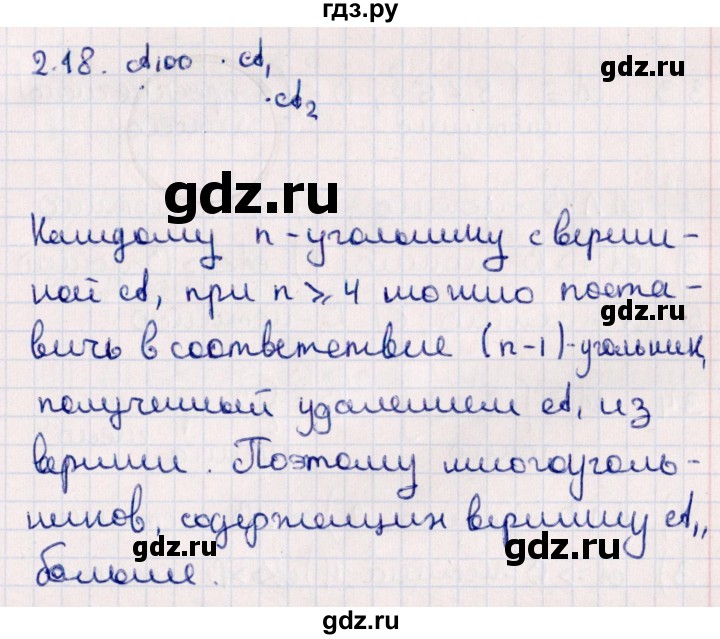 гдз.ру
2.18. A₁₀₀ · A₁
gdz.ru
· A₂
gdz.ru
Каждому n-угольнику с верши-
gdz.ru
ной A₁ при n ⩾ 4 можно поста-
вить в соответствие (n-1)-угольник,
полученный удалением A₁ из
gdz.ru
вершин. Поэтому многоуголь-
ников, содержащих вершину A₁,
gdz.ru
gdz.ru
больше.
gdz.ru